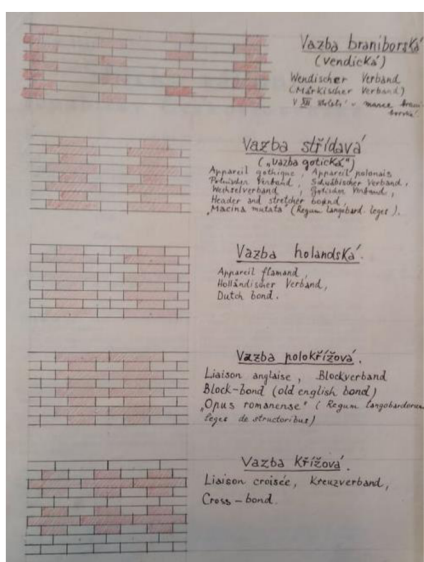 Vazba braniborská
(vendická)
Wendischer Verband
(Märkischer Verband)
V XII století -
Vazba střídavá
("vazba gotická")
Appareil gothique, Appareil polonais
Polnischer Verband, Verband,
Wechselverband, Gotischer Verband,
Header and stretcher bound,
"Macina mutata" (Regum langobard. leges).
Vazba holandská.
Appareil flamand,
Holländischer Verband,
Dutch bond.
Vazba polokřížová.
Liaison anglaise, Blockverband
Block-bond (old english bond)
"Opus romanense" (Regum langobardorum
leges de structoribus)
Vazba Křížová.
Liaison croisée, Kreuzverband,
Cross-bond.